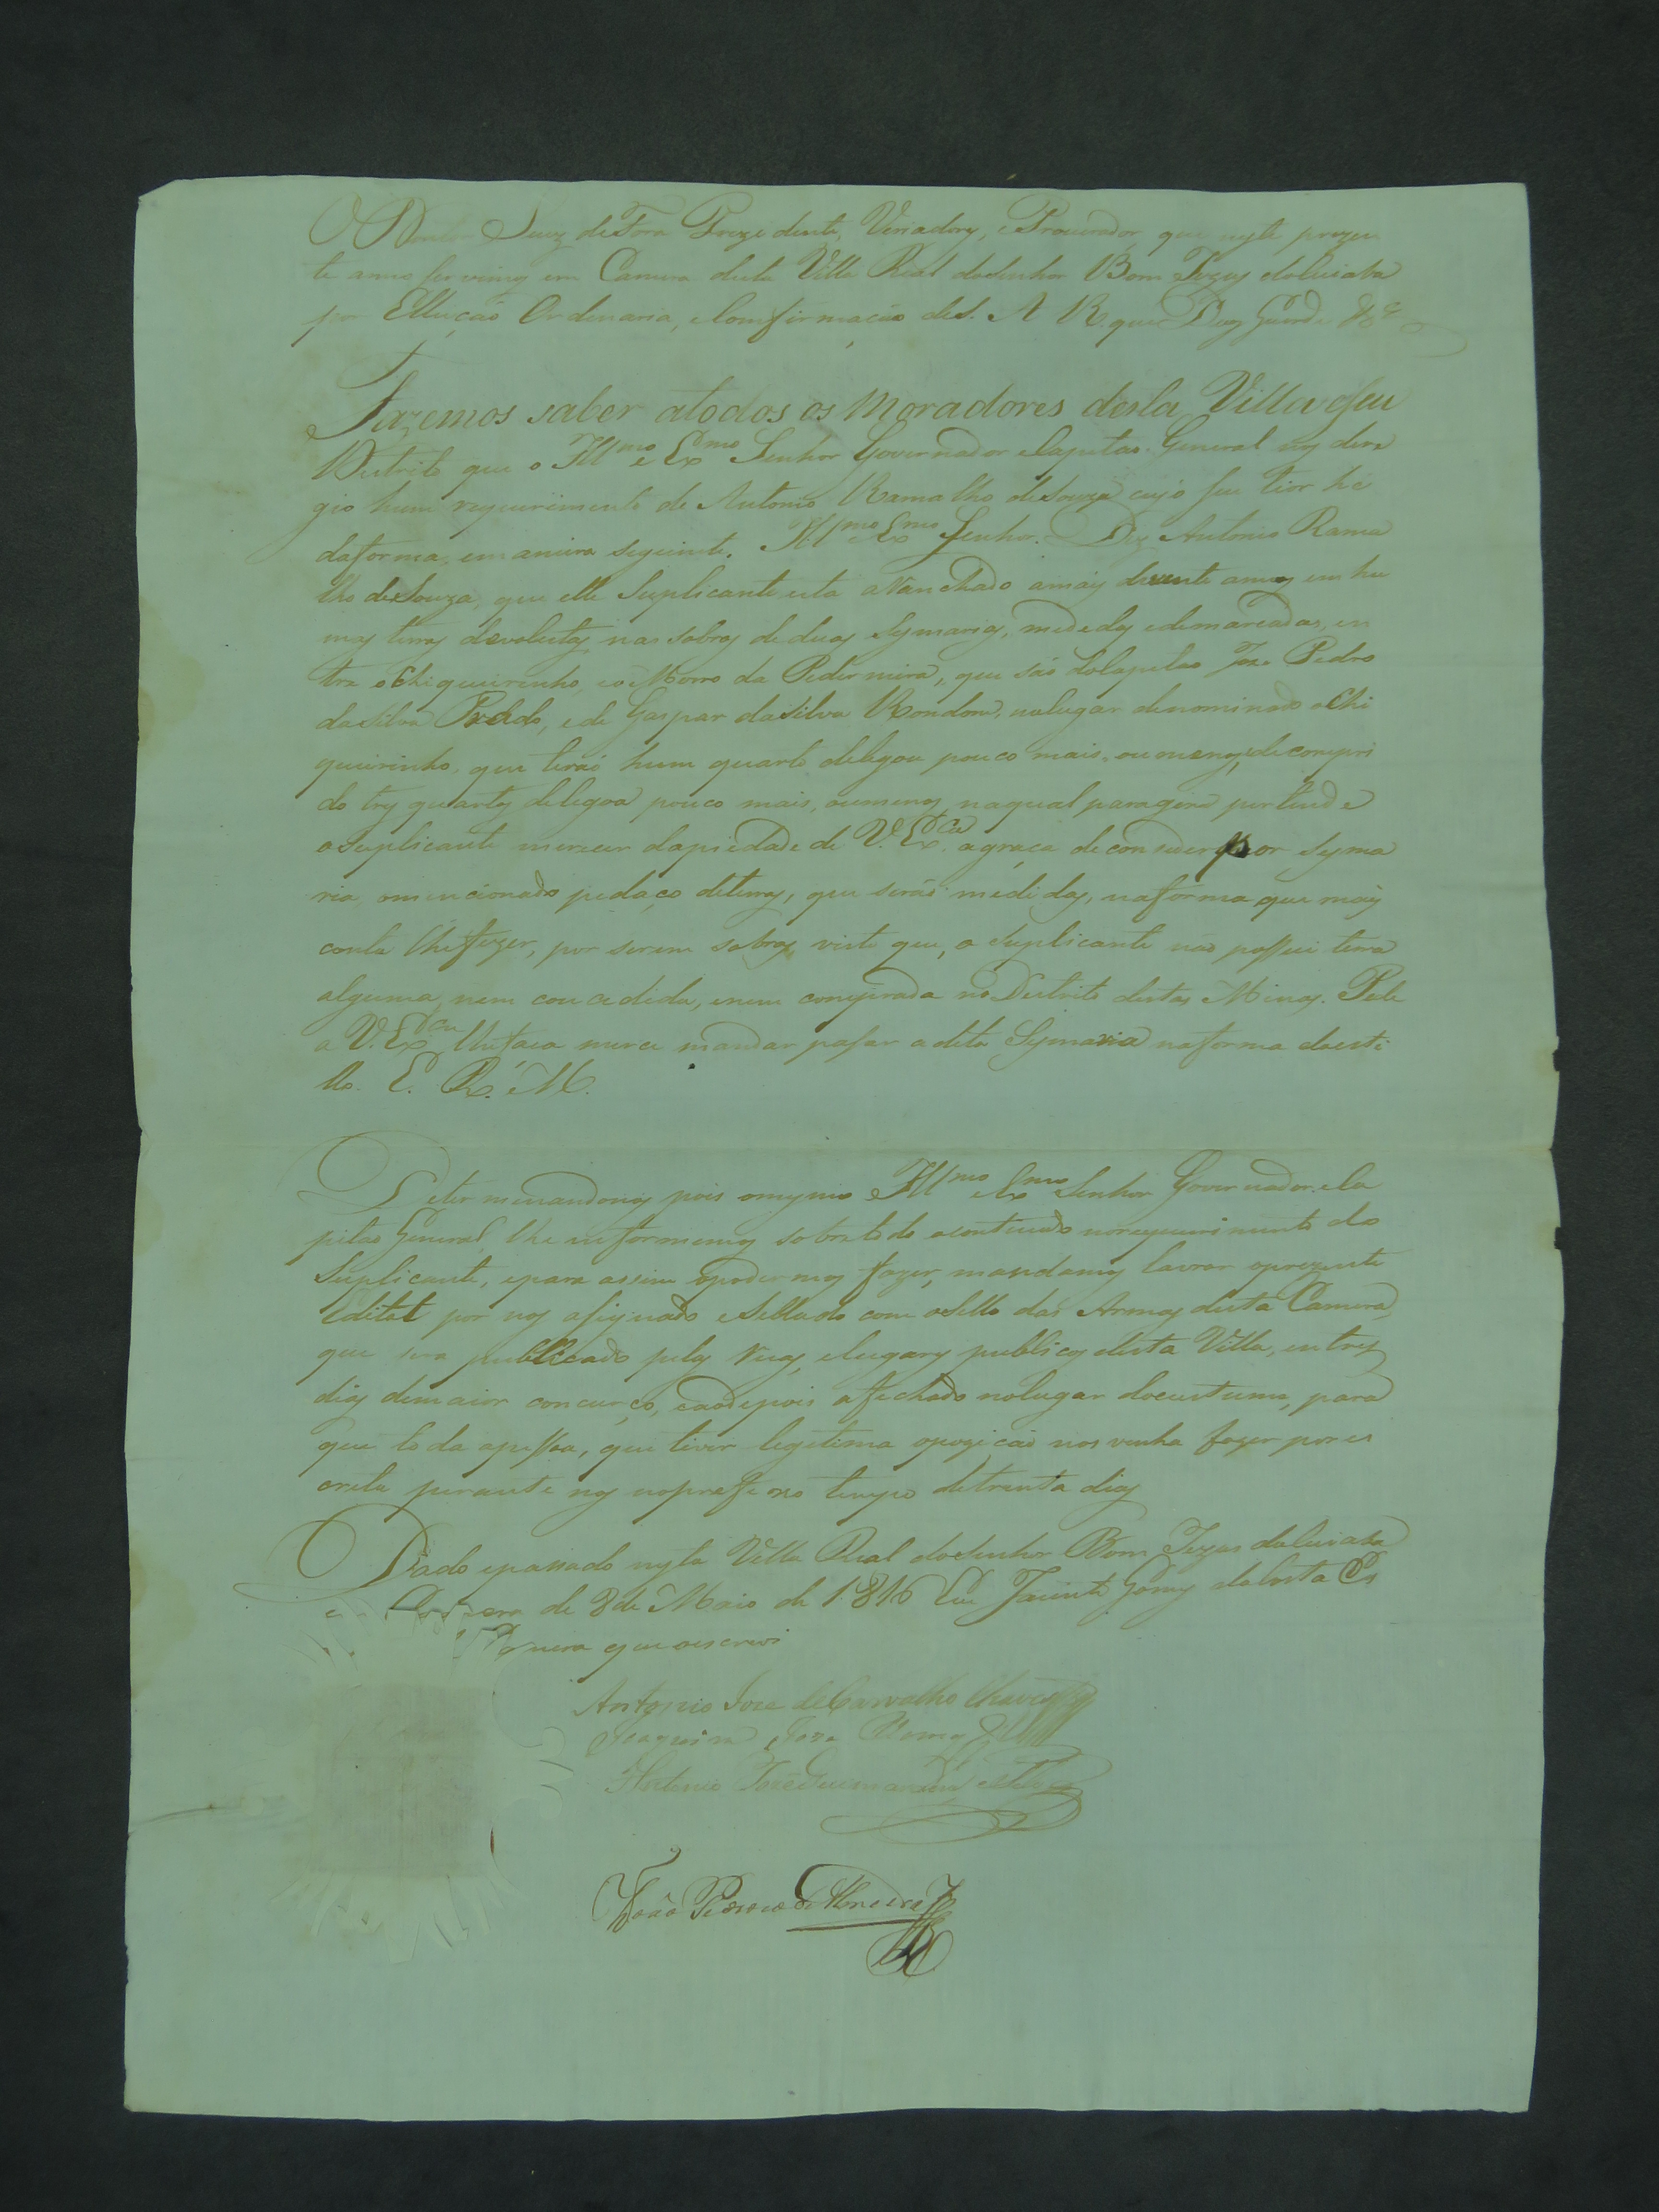 O Doutor Juiz de Fora Prezidente, Veriadores, e Procurador, que neste prezen
te anno servimos em Camera desta Villa Real do Senhor Bom Jezus do Cuiaba
por Elleição Ordenaria, e Comfirmação de S. A R. que Deos Guarde &ª
Fazemos saber atodos os Moradores desta Villa eseu
Destrito que o Illmo e Exmo Senhor Governador eCapitao General nos deri
gio hum requirimento de Antonio Ramalho deSouza cujo seu tior hé
daforma, emaneira seguinte. Illmo Exmo Senhor. Diz Antonio Rama
lho deSouza, que elle Suplicante esta aRanchado amais de vinte annos em hu
mas terras devolutas nas sobras de duas Sysmarias, medidas edemarcadas, en
tre oChiqueirinho, eo Morro da Pederneira, que são do Capitao Joze Pedro
daSilva Prado, e de Gaspar daSilva Rondom, nolugar denominado oChi
queirinho, que terão hum quarto delegoa pouco mais, ou menos, de compri
do tres quartos delegoa pouco mais, oumenos, naqual paragem pertende
oSuplicante merecer dapiedade de V. Exca agraça de conseder por Sysma
ria, omencionado pedaço deterras, que serão medidas, naforma que mais
conta lhefizer, por serem sobras, visto que, o Suplicante não possui terra
alguma, nem concedida, enem comprada no Destrito destas Minas. Pede
a V. Exca lhefaça merce mandar pasar adita Sysmaria naforma doesti
llo. E. R. M.
Determinandonos pois omesmo Illmo e Exmo Senhor Governador, eCa
pitão General, lhe informemos sobretodo ocontiudo norequerimento do
Suplicante, epara assim opodermos fazer, mandamos lavrar oprezente
Edital por nos asignado eSellado com oSello das Armas desta Camera,
que sera publicado pelas Ruas, elugares publicos desta Villa, em tres
dias demaior concurço, eaodepois afechado nolugar docustume, para
que toda apessoa, que tiver legitima opozição nos venha fazer por es
crito perante nos noprefixo tempo detrinta dias
Dado epassado nesta Villa Real doSenhor Bom Jezus doCuiaba
em Camera de 8 de Maio de 1816 Eu Jacinto Gomes daCosta Es
que oescrevi
Antonio Joze deCarvalho Chaves
Joaquim Joze
Antonio Joze Guimarães e
João Pedrozo de Almeida